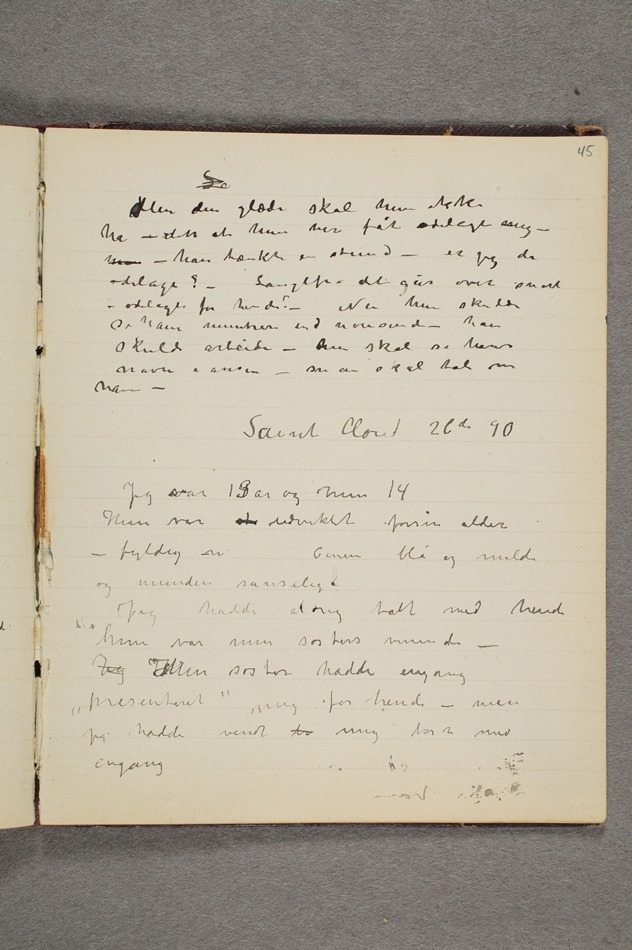 45
Men den glæde skal hun ikke
ha – at hun har fåt ødelagt mig –
– han tænkte en stund – er jeg da
ødelagt? – det går over snart
– ødelagt for hende? – Nei hun skulde
se ham
skulde arbeide – hun skal se hans
navn – skal tale om
ham –
Saint Cloud 26de 90
Jeg var 19 år og hun 14
Hun var udviklet for sin alder
– fyldig Øinene blå og milde
og munden sanselig
Jeg hadde aldrig talt med hende
hun var min søsters veninde –
Jeg Min søster hadde engang
„presenteret" mig for hende – men
jeg hadde vendt mig bort med
engang